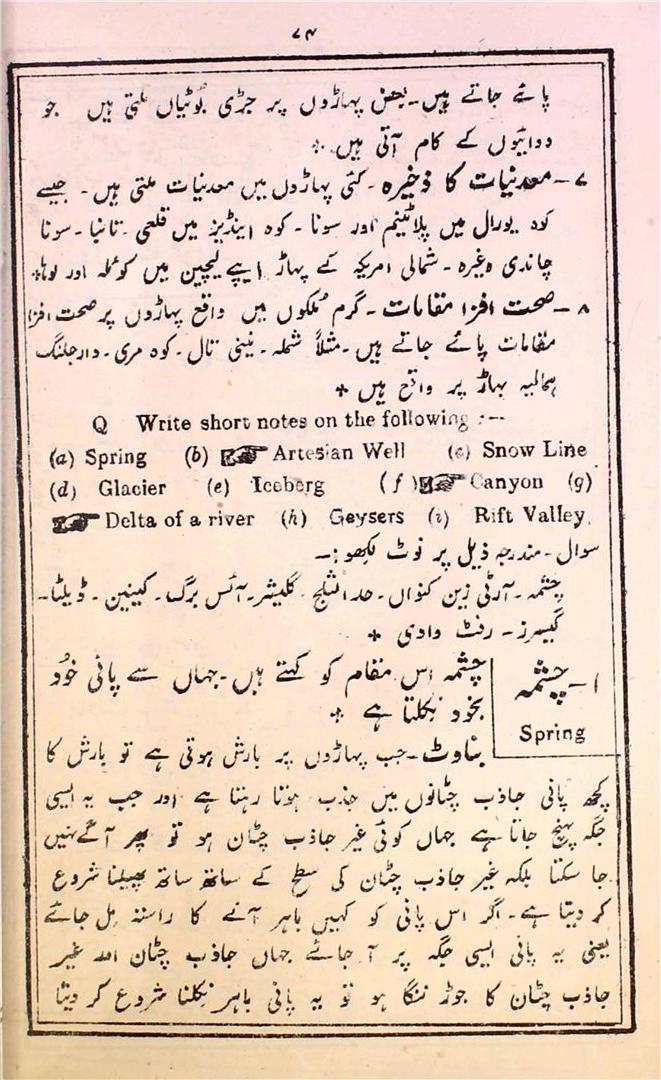 ۷۴
پائے جاتے ہیں۔ بعض پہاڑوں پر جڑی بُوٹیاں ملتی ہیں جو
دوائیوں کے کام آتی ہیں۔ ٭
۷۔ معدنیات کا ذخیرہ۔ کئی پہاڑوں میں معدنیات ملتی ہیں۔ جیسے
کوہ یورال میں پلاٹینم اور سونا۔ کوہ اینڈیز میں قلعی۔ تانبا۔ سونا
چاندی وغیرہ۔ شمالی امریکہ کے پہاڑ ایپے لیچین میں کوئلہ اور لوہا٭
۸۔ صحت افزا مقامات۔ گرم مُلکوں میں واقع پہاڑوں پر صحت افزا
مقامات پائے جاتے ہیں۔ مثلاً شملہ۔ نینی تال۔ کوہ مری۔ دارجلنگ
ہمالیہ پہاڑ پر واقع ہیں ٭
Q Write short notes on the following :—
(a) Spring (b) ☞ Artesian Well (c) Snow Line
(d) Glacier (e) Iceberg (f) ☞ Canyon (g)
☞ Delta of a river (h) Geysers (i) Rift Valley.
سوال۔ مندرجہ ذیل پر نوٹ لکھو:۔
چشمہ۔ آرٹی زین کنواں۔ حد الثلج۔ گلیشر۔ آئس برگ۔ کینین۔ ڈیلٹا۔
گیسرز۔ رفٹ وادی ٭
۱۔ چشمہ
Spring
چشمہ اس مقام کو کہتے ہیں۔ جہاں سے پانی خُود
بخود نِکلتا ہے ٭
بناوٹ۔ جب پہاڑوں پر بارش ہوتی ہے تو بارش کا
کچھ پانی جاذب چٹانوں میں جذب ہوتا رہتا ہے اور جب یہ ایسی
جگہ پہنچ جاتا ہے جہاں کوئی غیر جاذب چٹان ہو تو پھر آگے نہیں
جا سکتا بلکہ غیر جاذب چٹان کی سطح کے ساتھ ساتھ پھیلنا شروع
کر دیتا ہے۔ اگر اس پانی کو کہیں باہر آنے کا راستہ مِل جائے
یعنی یہ پانی ایسی جگہ پر آ جائے جہاں جاذب چٹان اور غیر
جاذب چٹان کا جوڑ ننگا ہو تو یہ پانی باہر نِکلنا شروع کر دیتا